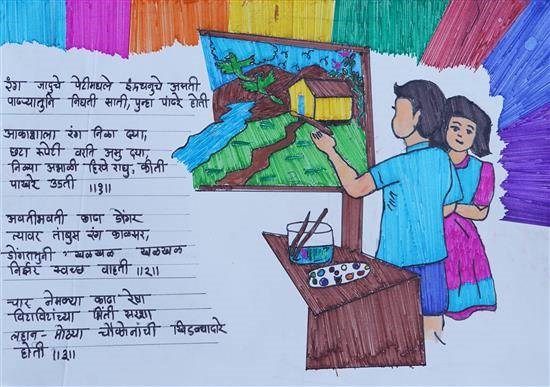 रंग जादुचे पेटीमधले इंद्रधनुचे असती
पांढऱ्यातुनि निघती साती, पुन्हा पांढरे होती
आकाशाला रंग निळा द्या,
छटा रुपेरी वरति असु द्या,
निळ्या अभाळी हिरवे राघू, कीती
पाखरे उडती ॥१॥
अवतीभवती काढा डोंगर
त्यावर तांबुस रंग काळसर,
डोंगरातुनी खळखळ खळखळ
निर्झर स्वच्छ वाहती ॥२॥
चार नेमक्या काढा रेषा
विटाविटांच्या भिंती सरशा
लहान - मोठ्या चौकोनांची खिडक्यादारे
होती ॥३॥